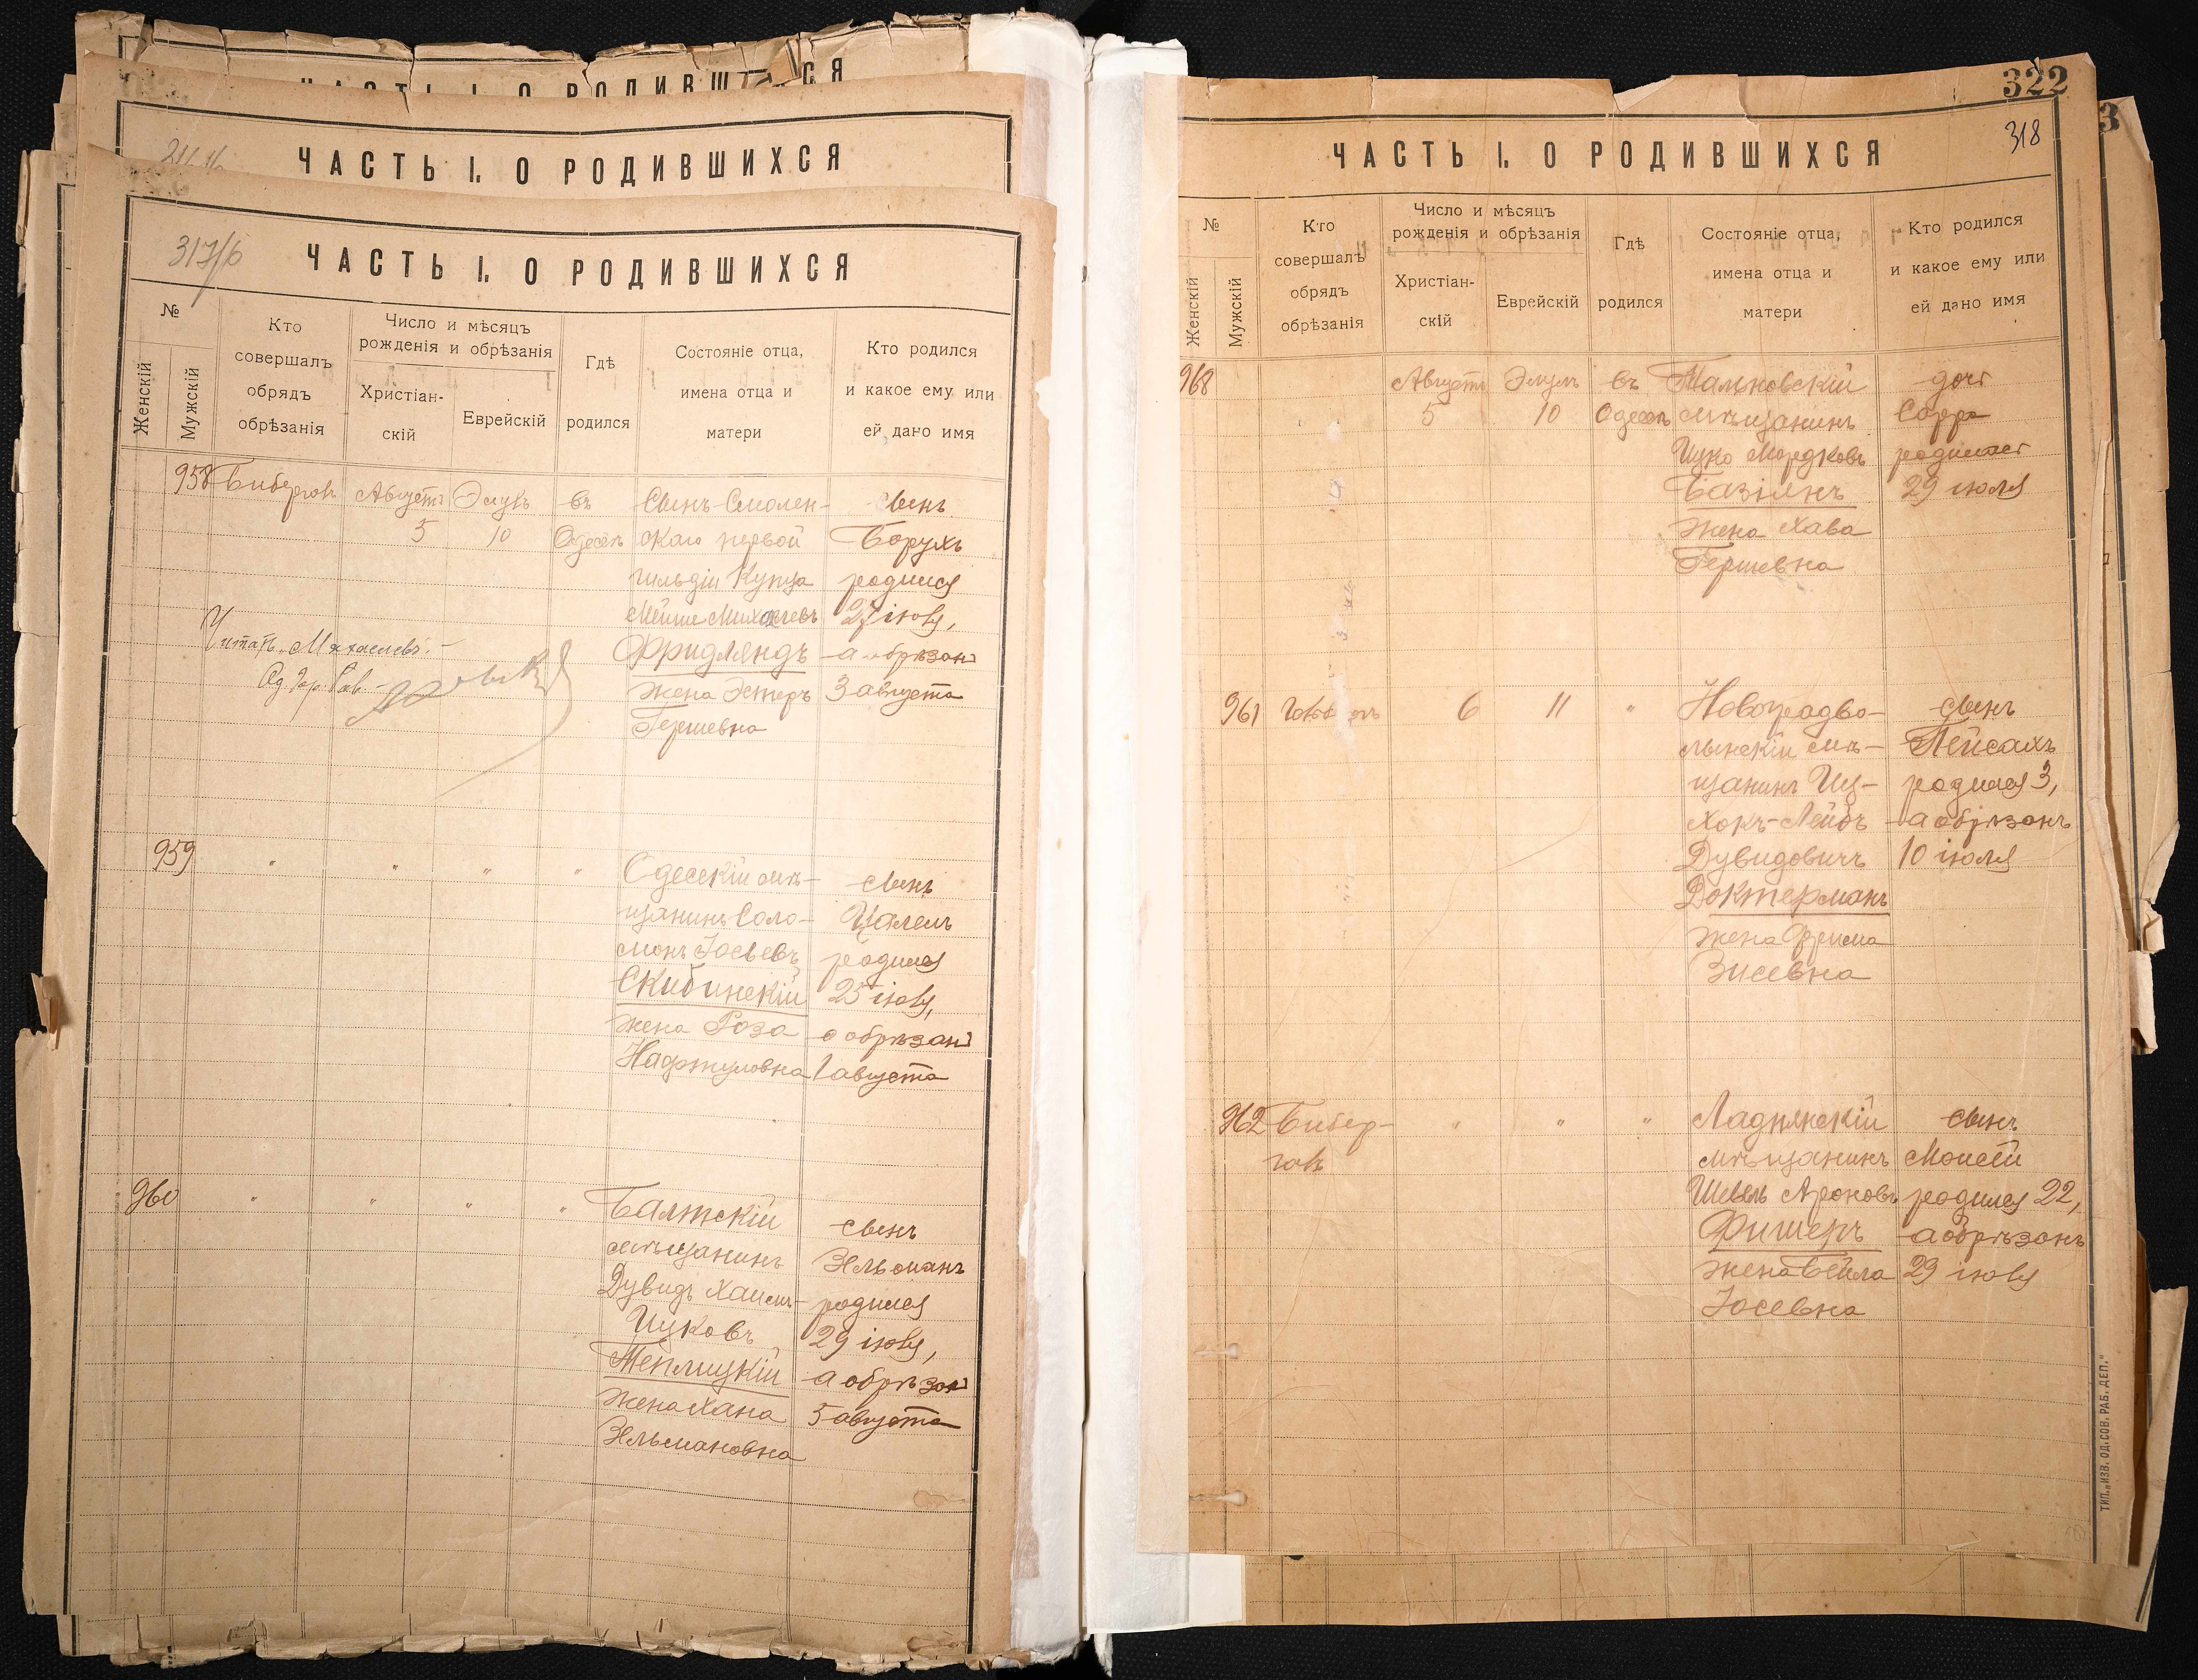 ЧАСТЬ I. О РОДИВШИХСЯ
ЧАСТЬ I. О РОДИВШИХСЯ
317/б
ЧАСТЬ I. О РОДИВШИХСЯ
№
Женскій
Мужскій
Кто
совершалъ
обрядъ
обрѣзанія
Число и мѣсяцъ
рожденія и обрѣзанія
Христіан-
скій
Еврейскій
Гдѣ
родился
Состояніе отца,
имена отца и
матери
Кто родился
и какое ему или
ей дано имя
958
Бибергов
Августъ
5
Элулъ
10
въ
Одессѣ
Сынъ Смолен-
скаго первой
гильдіи купца
Мейше Михелевъ
Фридляндъ
жена Эстеръ
Гершевна
сынъ
Борухъ
родился
27 іюля,
а обрѣзанъ
3 августа
Читать „Михаелевъ"
Од. Гор. Рав.
959
" " " "
Одесскій мѣ-
щанинъ Соло-
монъ Іосьевъ
Скибинскій
жена Роза
Нафтуловна
сынъ
Цалель
родился
25 іюля,
а обрѣзанъ
1 августа
960
" " " "
Балтскій
мѣщанинъ
Дувидъ Хаимъ-
Ицковъ
Теплицкій
жена Хана
Зельмановна
сынъ
Зельманъ
родился
29 іюля,
а обрѣзанъ
5 августа
322
318
ЧАСТЬ I. О РОДИВШИХСЯ
№
Женскій
Мужскій
Кто
совершалъ
обрядъ
обрѣзанія
Число и мѣсяцъ
рожденія и обрѣзанія
Христіан-
скій
Еврейскій
Гдѣ
родился
Состояніе отца,
имена отца и
матери
Кто родился
и какое ему или
ей дано имя
968
Августъ
5
Элулъ
10
въ
Одессѣ
мѣщанинъ
Ицко Мордковъ
Базілянъ
жена Хава
Гершевна
дочь
Сарра
родилась
29 іюля
961
6
11
"
Новоградво-
лынскій мѣ-
щанинъ Иц-
хокъ-Лейбъ
Дувидовичъ
Доктерманъ
жена Фрима
Зисевна
сынъ
Пейсахъ
родился 3,
а обрѣзанъ
10 іюля
962
Бибер-
говъ
" " "
Ладнянскій
мѣщанинъ
Шевель Ароновъ
Фишеръ
жена Бейла
Іосевна
сынъ
Моисей
родился 22,
а обрѣзанъ
29 іюля
ТИП. „ИЗВ. ОД. СОВ. РАБ. ДЕП."